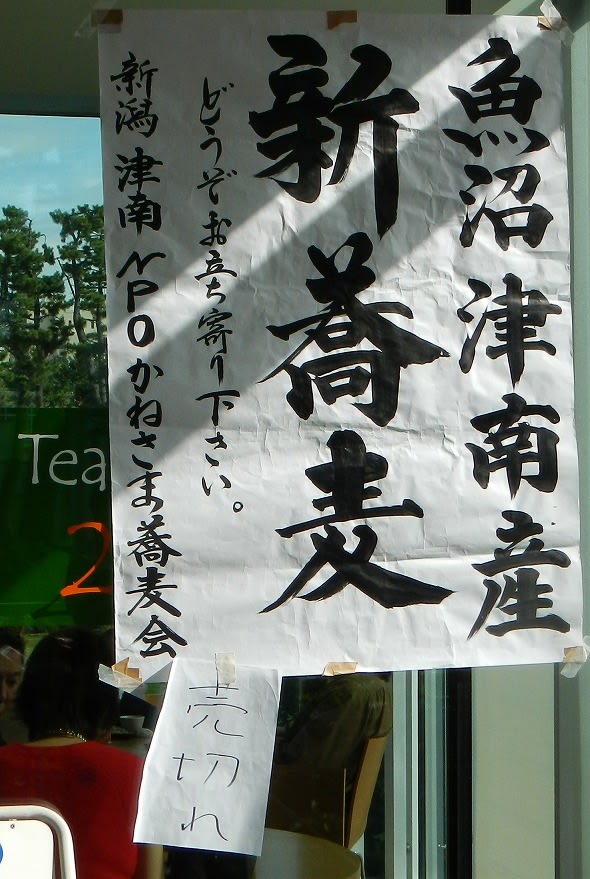 魚沼津南産
新蕎麦
どうぞお立ち寄り下さい。
新潟 津南 NPO かねさま蕎麦会
売切れ
Tea
2